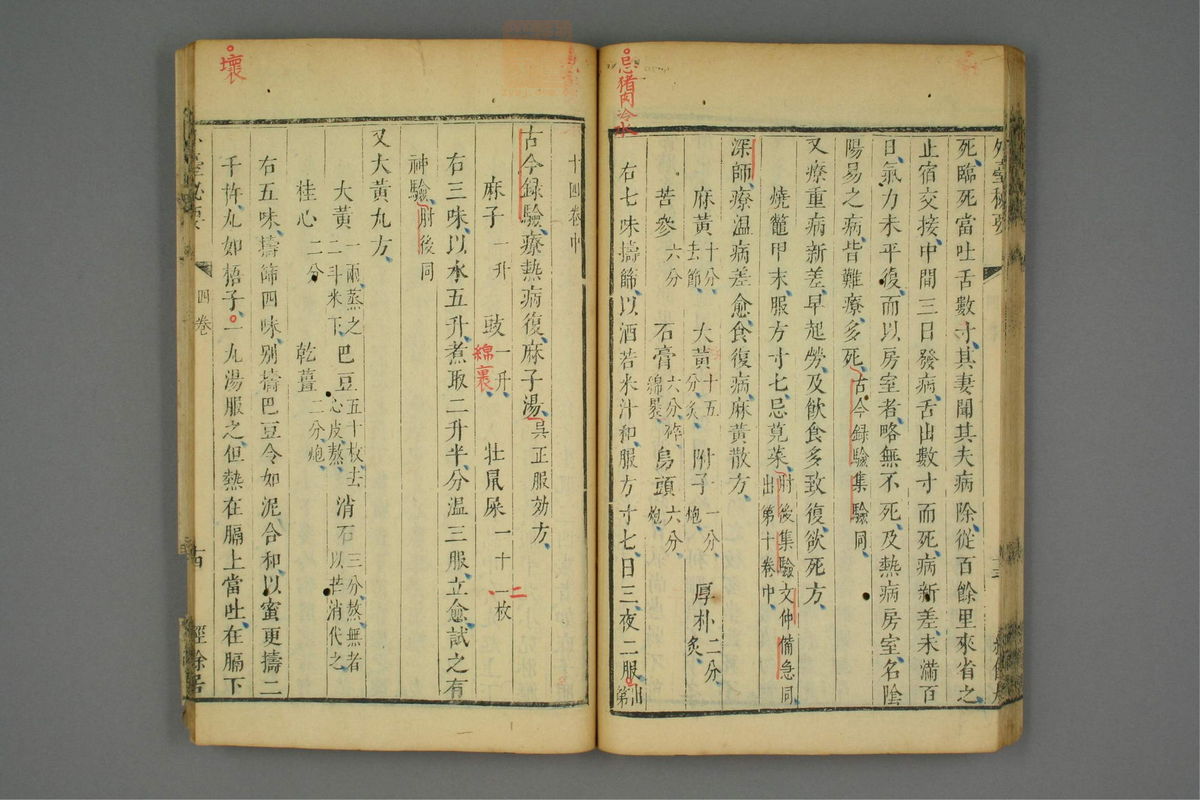 外臺秘要
死臨死當吐舌數寸其妻聞其夫病除從百餘里來省之
止宿交接中間三日發病舌出數寸而死病新差未滿百
日氣力未平復而以房室者略無不死及熱病房室名陰
陽易之病皆難療多死古今録驗集驗同
又療重病新差早起勞及飲食多致復欲死方
燒鼈甲末服方寸七忌莧菜肘後集驗文仲備急同
出第十卷中
深師療溫病差愈食復病麻黃散方
麻黃十分去節 大黃十五分炙 附子一分炮 厚朴二分炙
苦參六分 石膏六分碎綿裹 烏頭六分炮
右七味擣篩以酒若米汁和服方寸七日三夜二服出第
忌猪肉冷水
十四卷中
古今録驗療熱病復麻子湯吴正服効方
麻子一升 豉一升 牡鼠屎一十一枚
綿裹
二
右三味以水五升煮取二升半分溫三服立愈試之有
神驗肘後同
又大黃丸方
大黃一兩蒸之二斗米下 巴豆五十枚去心皮熬 消石三分熬無者以芒消代之
桂心二分 乾薑二分炮
右五味擣篩四味別擣巴豆令如泥合和以蜜更擣二
千杵丸如梧子一丸湯服之但熱在膈上當吐在膈下
壞
四卷
十四
經餘居